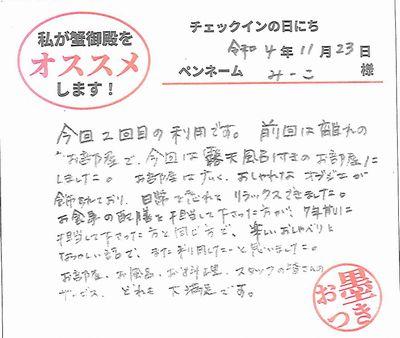 私が蟹御殿を
オススメ
します！
チェックインの日にち
令和4年11月23日
ペンネーム みーこ 様
今回2回目の利用です。前回は離れの
お部屋で、今回は露天風呂付きのお部屋に
しました。お部屋は広く、おしゃれなオブジェが
飾られており、日常を忘れ リラックスできました。
お食事の配膳を担当して下さった方が、7年前に
担当して下さった方と同じ方で、楽しいおしゃべりと
なつかしい話で、また利用したいと思いました。
お部屋、お風呂、お料理、スタッフの皆さんの
サービス、どれも大満足です。
お墨つき